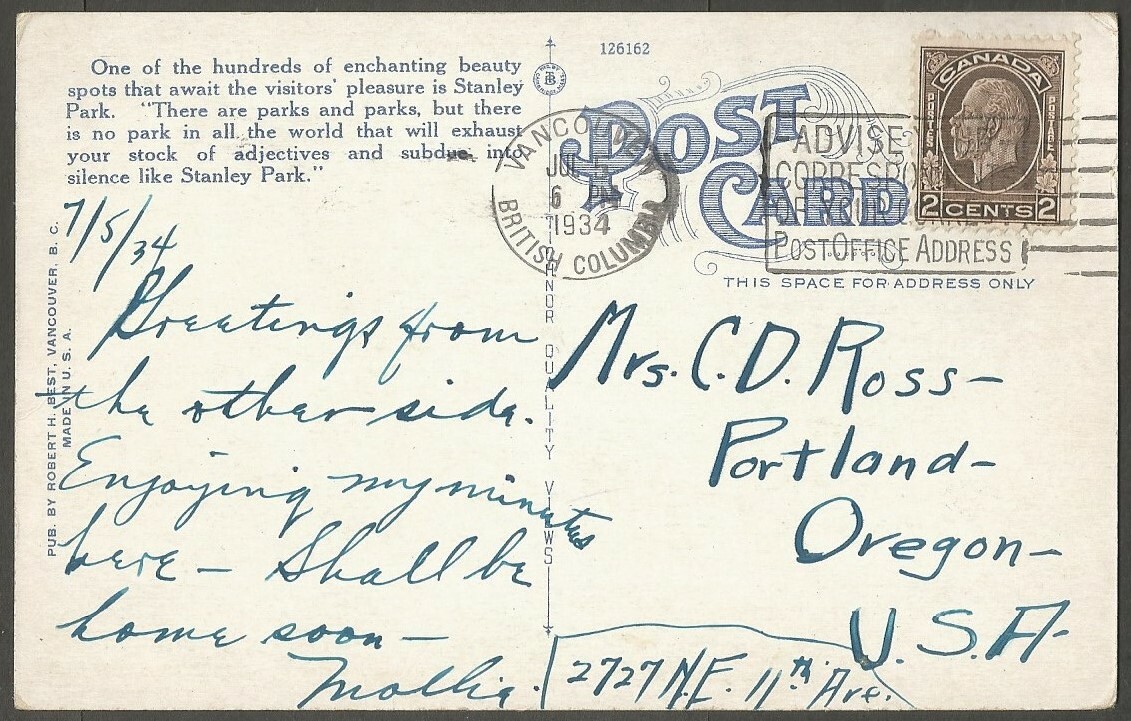 One of the hundreds of enchanting beauty
spots that await the visitors' pleasure is Stanley
Park. "There are parks and parks, but there
is no park in all the world that will exhaust
your stock of adjectives and subdue into
silence like Stanley Park."
126162
POST
CARD
CANADA
POSTES
POSTAGE
2 CENTS 2
VANCOUVER
JUL 5
6 PM
1934
BRITISH COLUMBIA
ADVISE YOUR
CORRESPO
OF YOUR
POST OFFICE ADDRESS
THIS SPACE FOR ADDRESS ONLY
7/5/34
Greetings from
the other side.
Enjoying my minutes
here – Shall be
home soon –
Mollie.
Mrs. C. D. Ross –
Portland –
Oregon –
U. S. A –
2727 N.E. 11th Ave.
PUB. BY ROBERT H. BEST, VANCOUVER, B. C.
MADE IN U. S. A.
QUALITY VIEWS